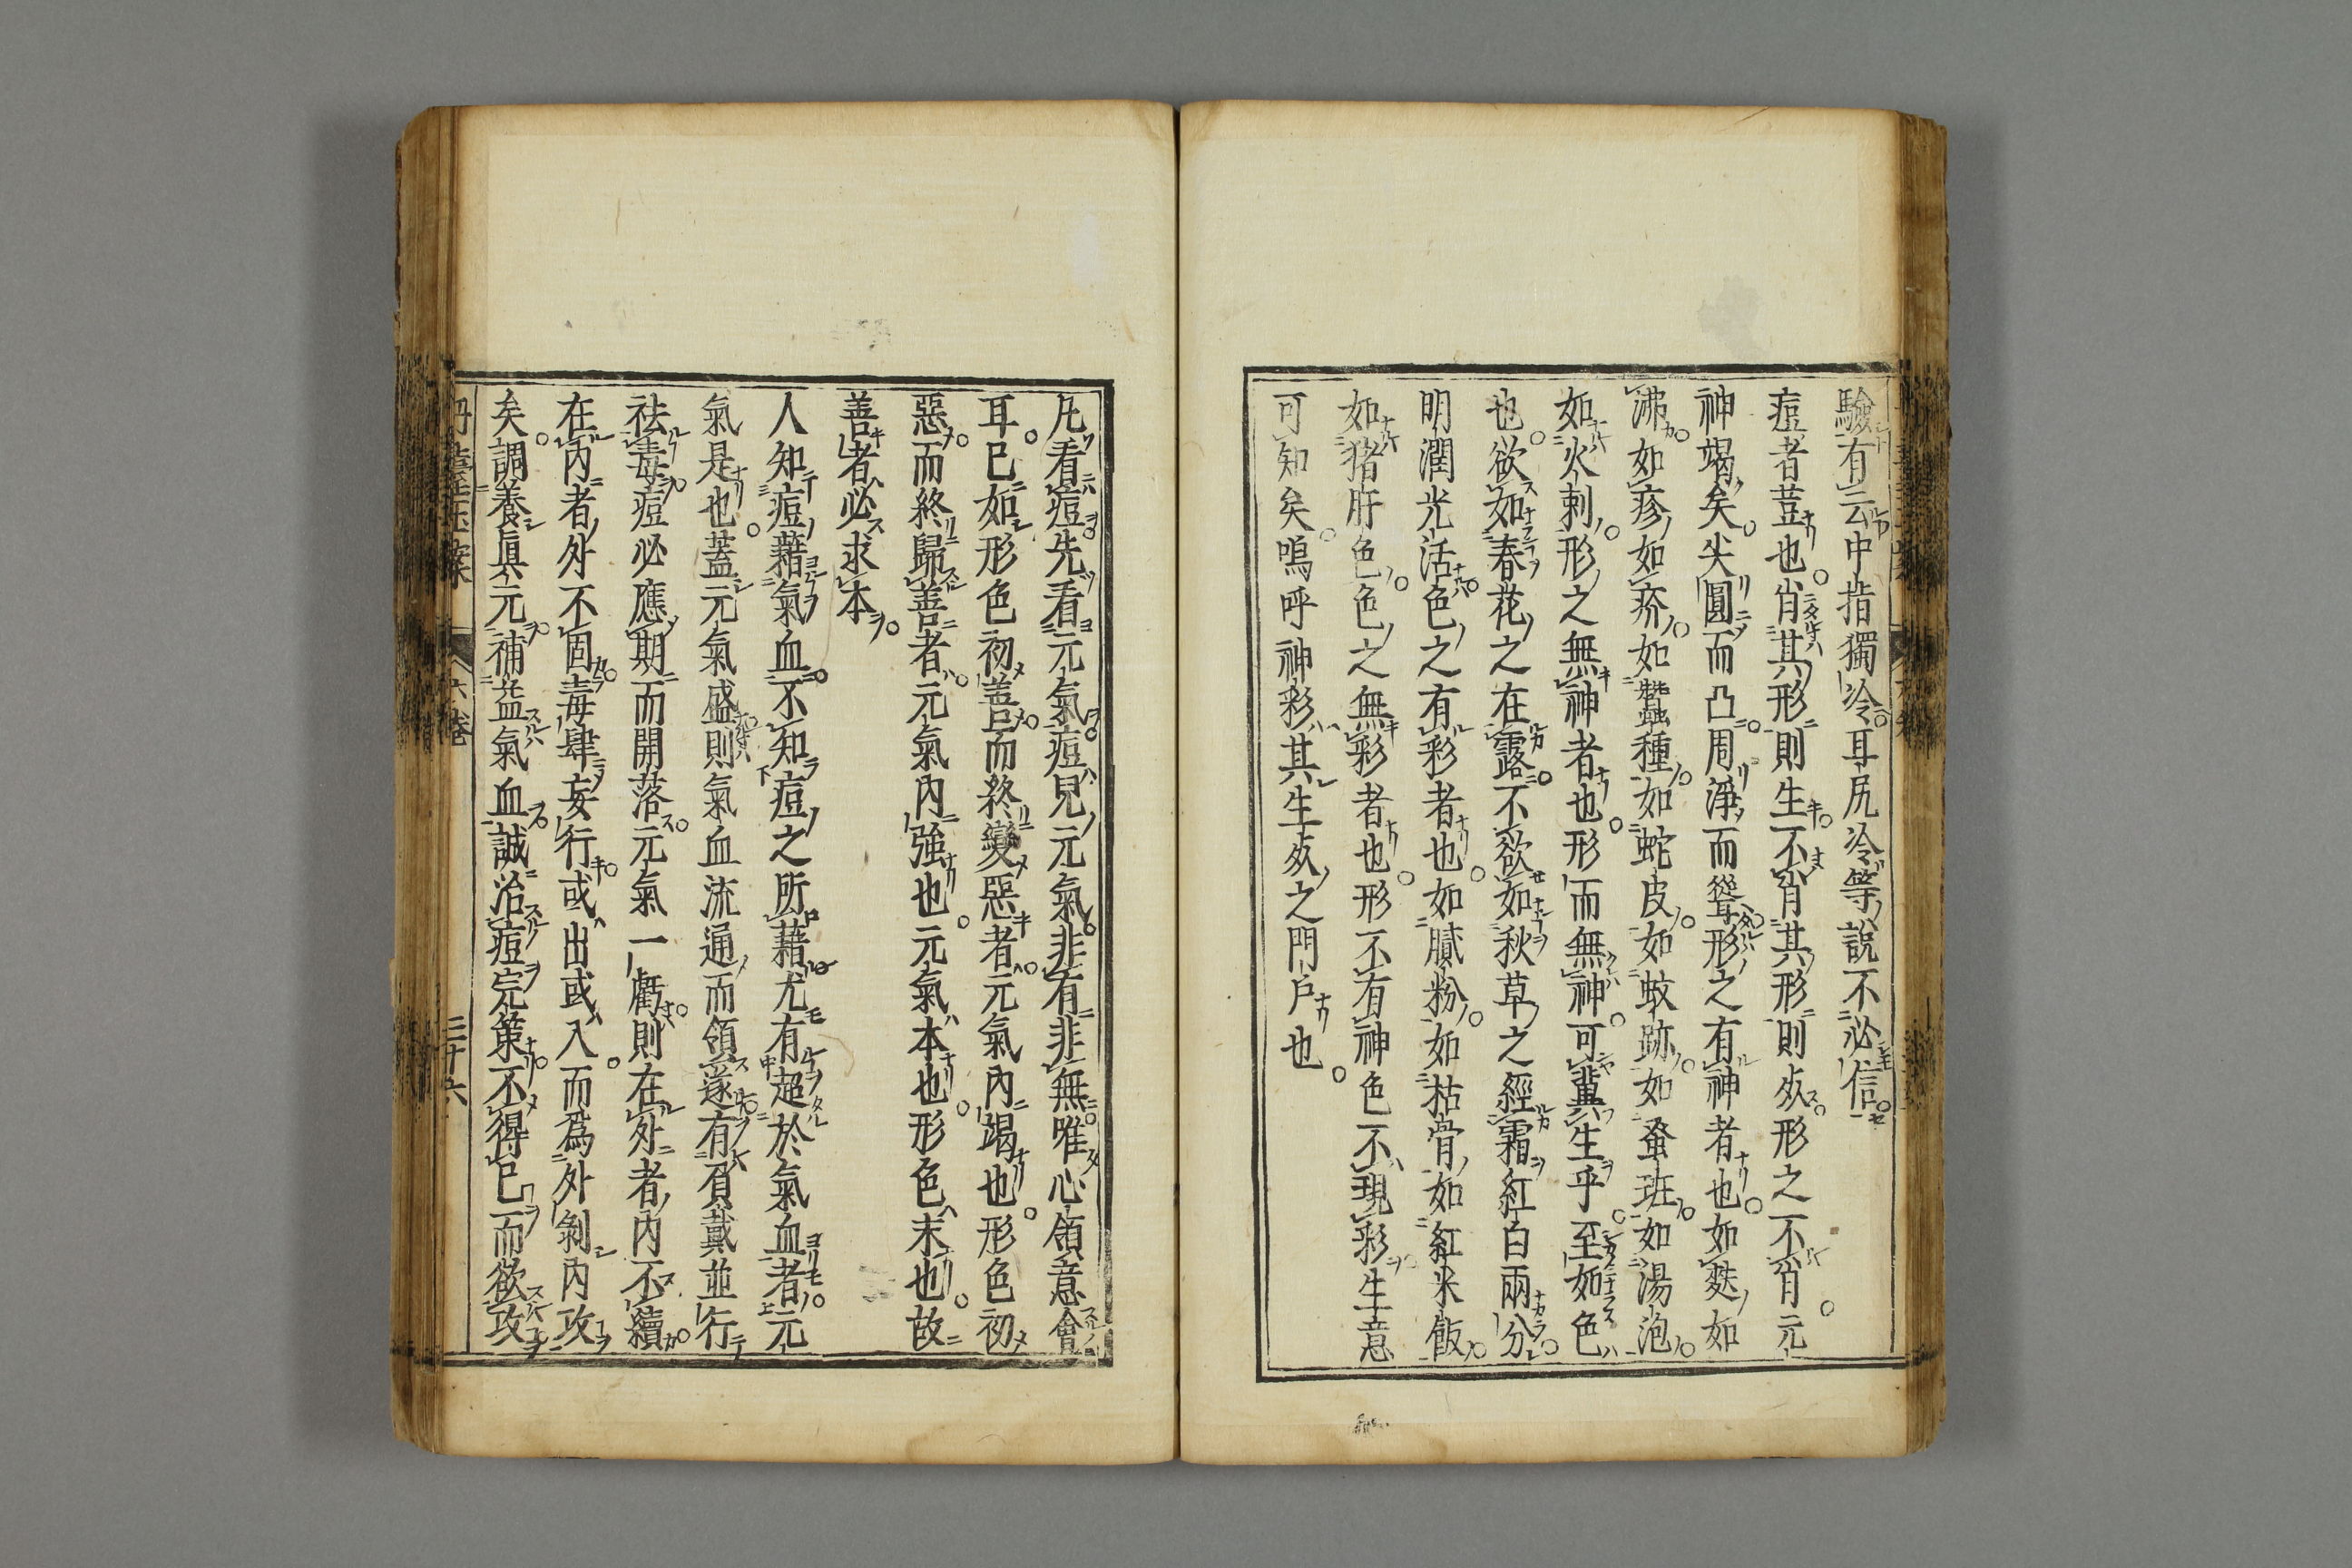 驗有云中指獨冷耳尻冷等說不必信
痘者荳也肖其形則生不肖其形則夊形之不肖元
神竭矣尖圓而凸周淨而聳形之有神者也如麩如
沸如疹如疥如蠶種如蛇皮如蚊跡如蚤班如湯泡
如火刺形之無神者也形而無神可冀生乎至如色
也欲如春花之在露不欲如秋草之經霜紅白兩分
明潤光活色之有彩者也如膩粉如枯骨如紅米飯
如猪肝色色之無彩者也形不有神色不現彩生意
可知矣嗚呼神彩其生夊之門戶也
凡看痘先看元氣痘兒元氣非有非無唯心領意會
耳已如形色初善而終變惡者元氣內竭也形色初
惡而終歸善者元氣內強也元氣本也形色末也故
善者必求本
人知痘藉氣血不知痘之所藉尤有超於氣血者元
氣是也蓋元氣盛則氣血流通而領遂有頂戴並行
祛毒痘必應期而開落元氣一虧則在外者內不續
在內者外不固毒肆妄行或出或入而為外剝內攻
矣調養眞元補益氣血誠治痘完策不得已而欲攻
六卷
三十六